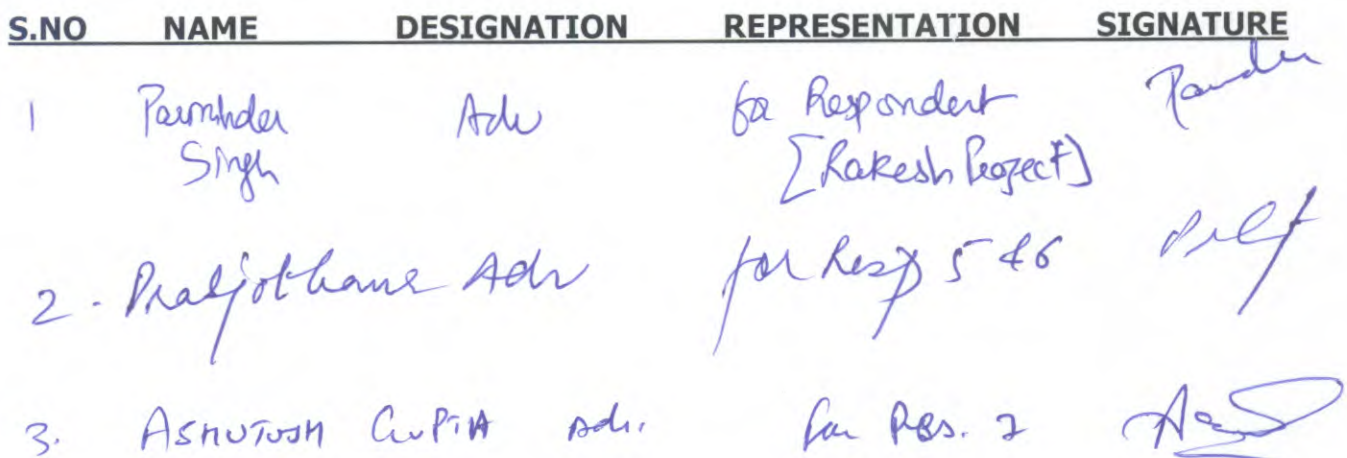 S.NO NAME DESIGNATION REPRESENTATION SIGNATURE
1 Parminder Adv for Respondent
Singh [Rakesh Project]
2 - Adv for Resp 5 &6
3. ASHUTOSH GUPTA Adv. for Res.